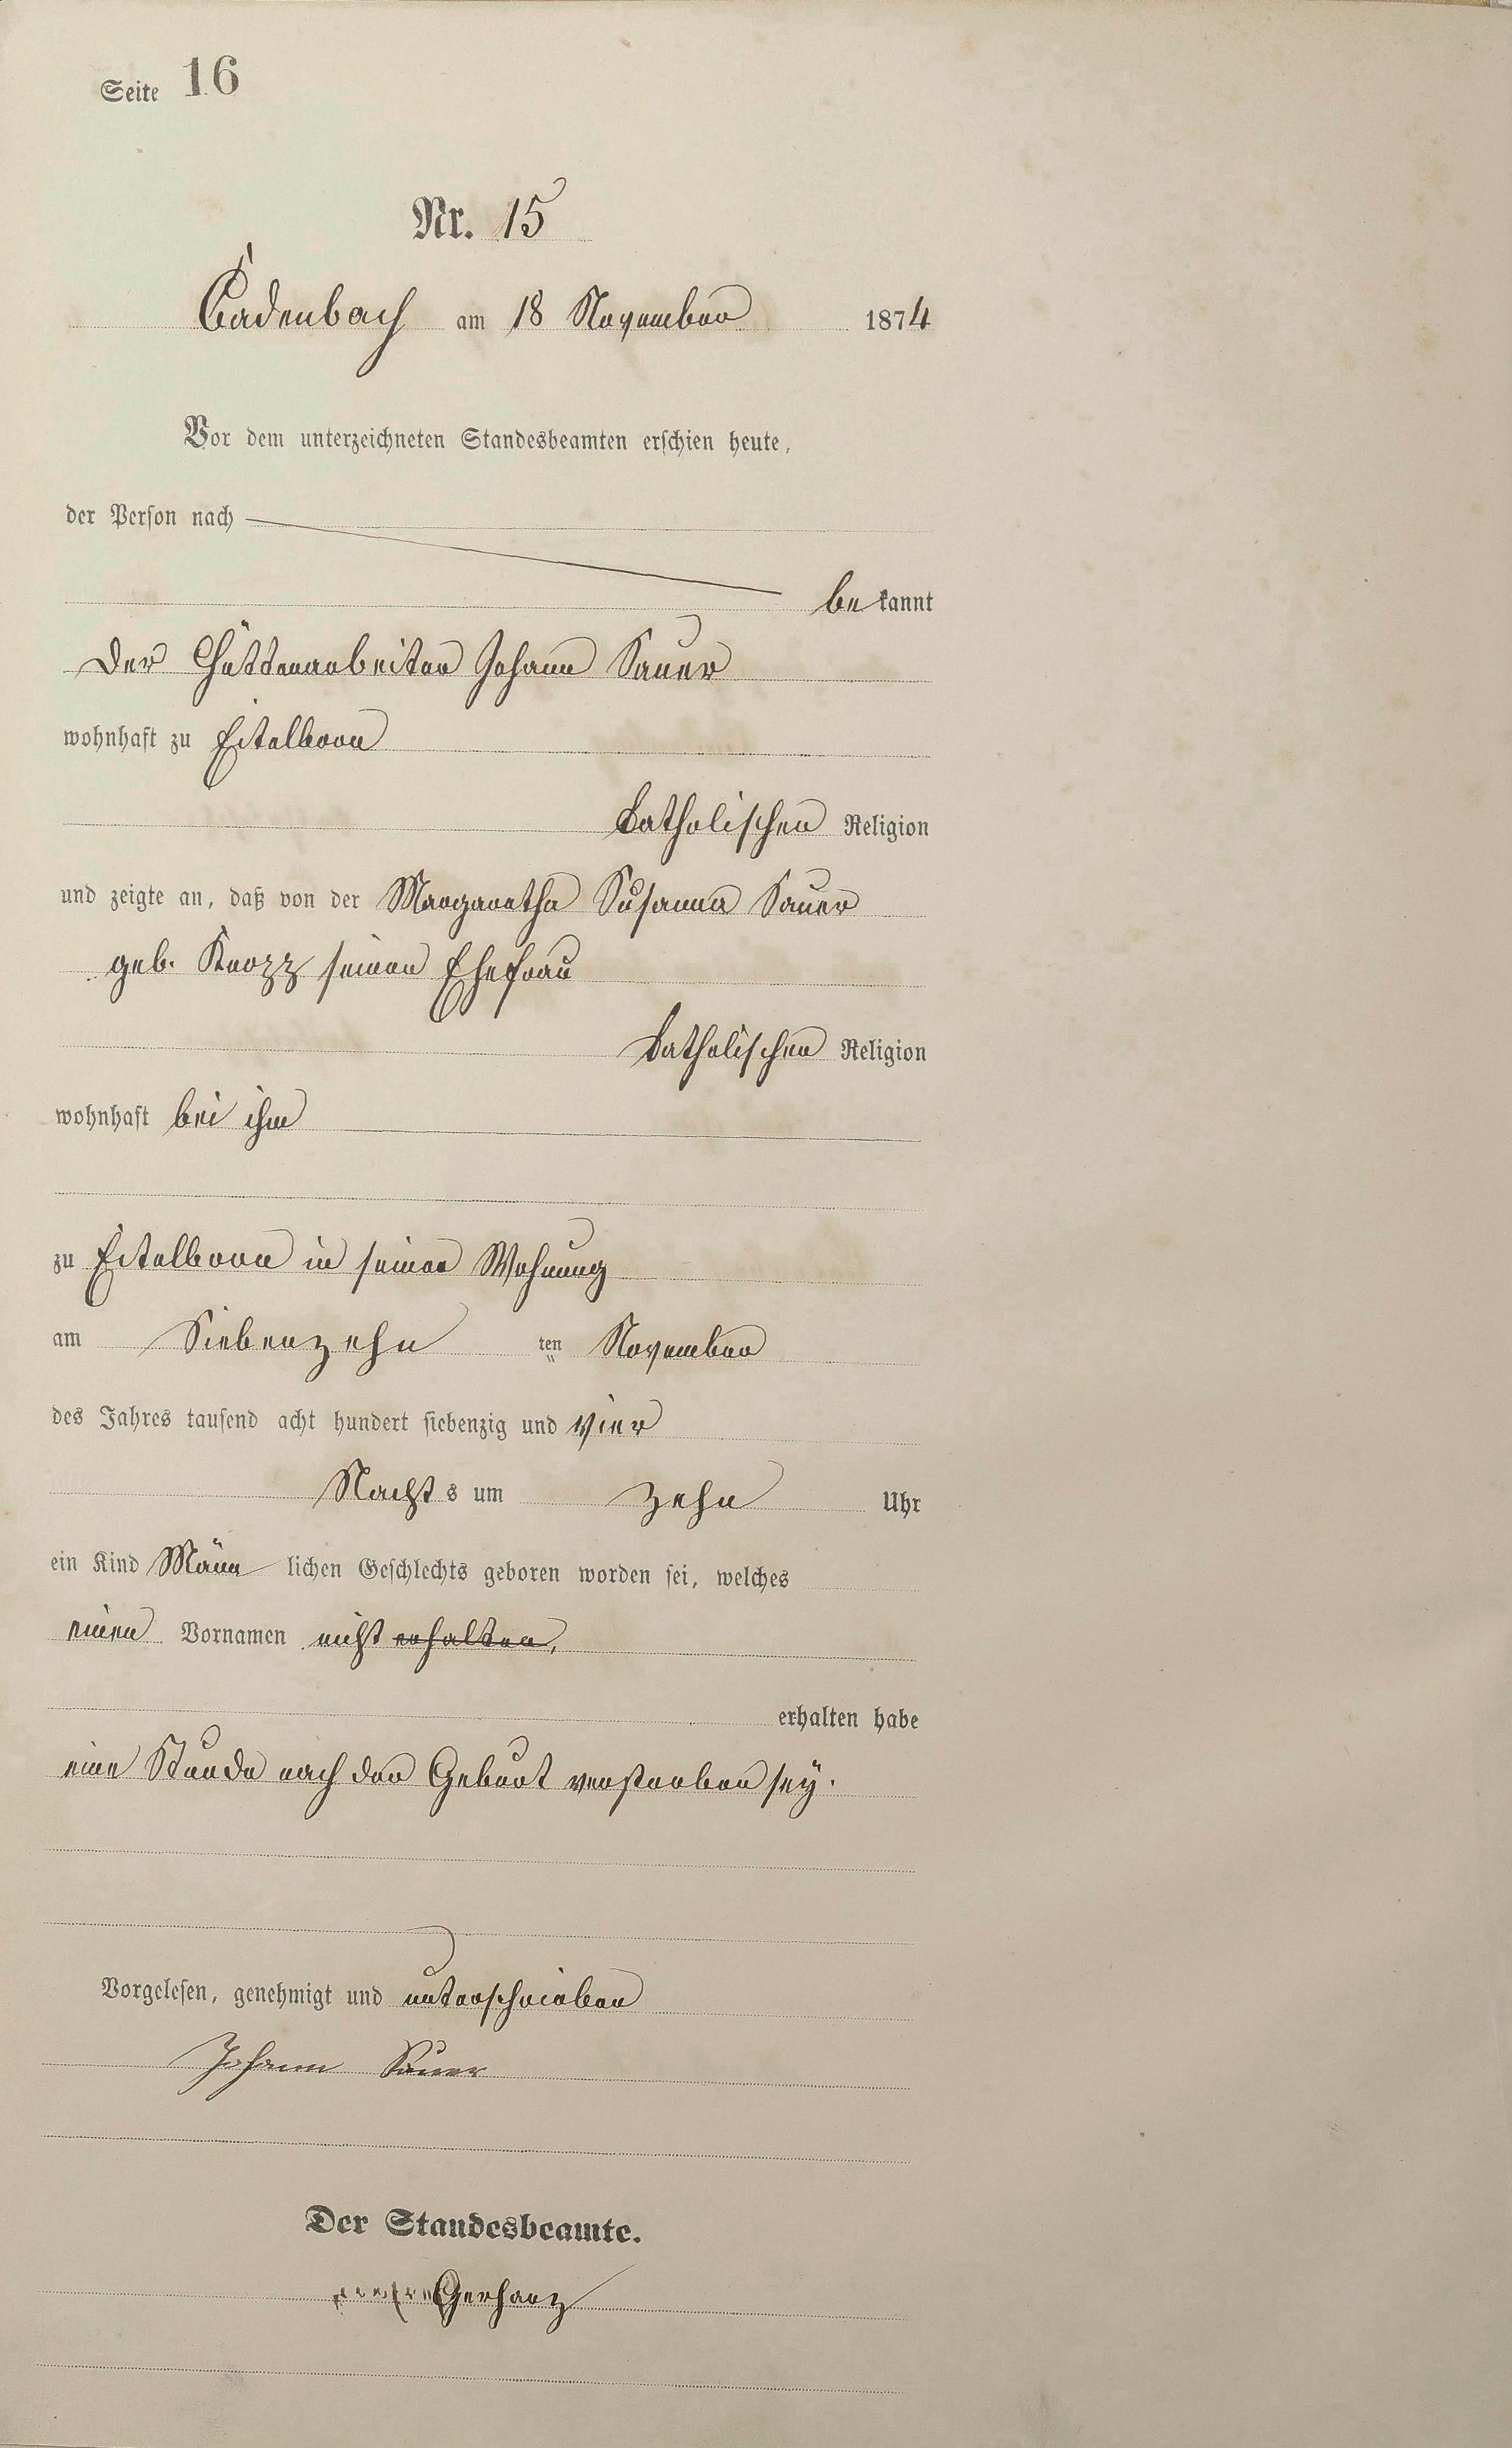 Seite 16
Nr. 15
Cadenbach am 18 November 1874
Vor dem unterzeichneten Standesbeamten erschien heute,
der Person nach
bekannt
der Hüttenarbeiter Johann Sauer
wohnhaft zu Eitelborn
katholischen Religion
und zeigte an, daß von der Margaretha Susanna Sauer
geb. Knopp seiner Ehefrau
katholischen Religion
wohnhaft bei ihm
zu Eitelborn in seiner Wohnung
am Siebenzehn ten November
des Jahres tausend acht hundert siebenzig und vier
Nachts um zehn Uhr
ein Kind Männlichen Geschlechts geboren worden sei, welches
einen Vornamen nicht erhalten,
erhalten habe
eine Stunde nach der Geburt verstorben sey.
Vorgelesen, genehmigt und unterschrieben
Johann Sauer
Der Standesbeamte.
Gerharz